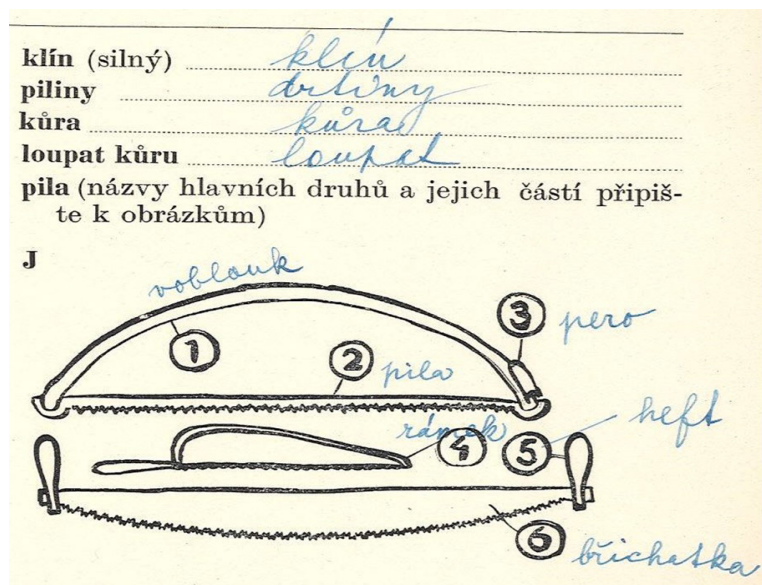 klín (silný) klín
piliny drtiny
kůra kůra
loupat kůru loupat
pila (názvy hlavních druhů a jejich částí připiš-
te k obrázkům)
J
voblouk
1
3 pero
2 pila
rámek
4
5 heft
6 břichatka